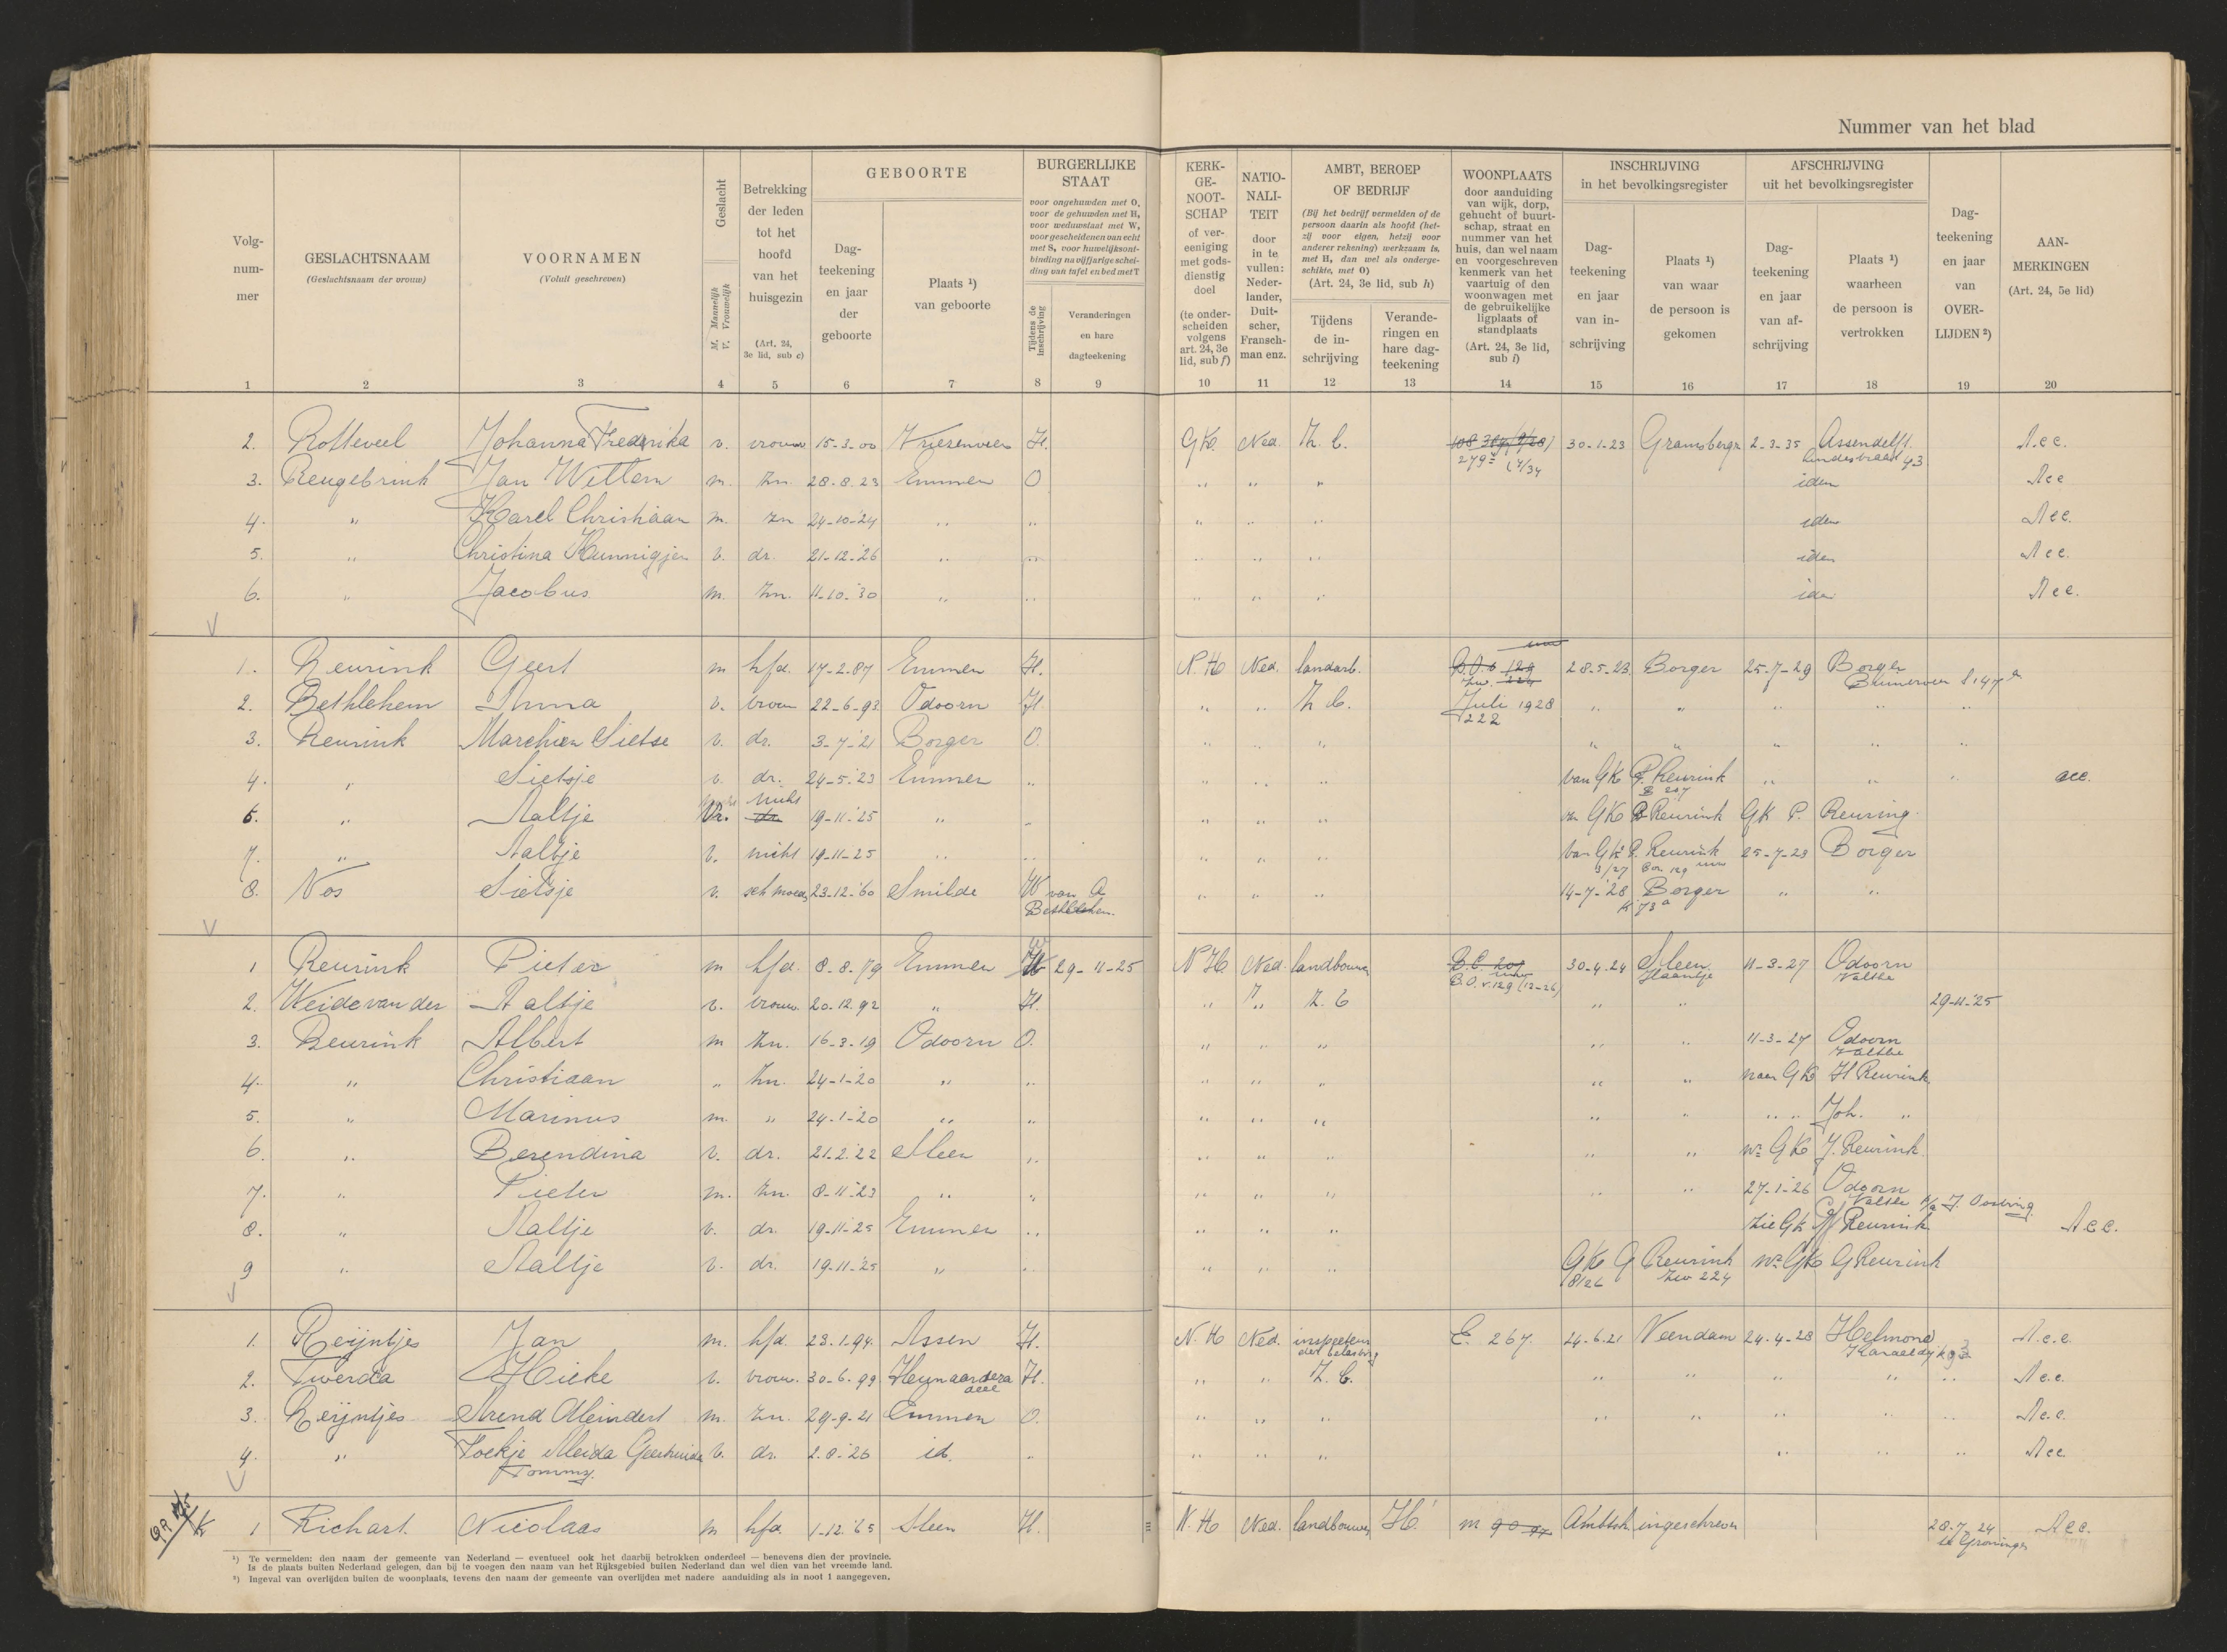 Nummer van het blad
Volgnummer
GESLACHTSNAAM
(Geslachtsnaam der vrouw)
VOORNAMEN
(Voluit geschreven)
Geslacht
M. Mannelijk
V. Vrouwelijk
Betrekking der leden tot het hoofd van het huisgezin
(Art. 24, 3e lid, sub c)
GEBOORTE
Dagteekening en jaar der geboorte
Plaats ¹) van geboorte
BURGERLIJKE STAAT
voor ongehuwden met O, voor de gehuwden met H, voor weduwstaat met W, voor gescheidenen van echt met S, voor huwelijksontbinding na vijfjarige scheiding van tafel en bed met T
Tijdens de inschrijving
Veranderingen en hare dagteekening
KERKGENOOTSCHAP of vereeniging met godsdienstig doel
(te onderscheiden volgens art. 24, 3e lid, sub f)
NATIONALITEIT
door in te vullen: Nederlander, Duitscher, Franschman enz.
AMBT, BEROEP OF BEDRIJF
(Bij het bedrijf vermelden of de persoon daarin als hoofd (hetzij voor eigen, hetzij voor anderer rekening) werkzaam is, met H, dan wel als ondergeschikte, met O)
(Art. 24, 3e lid, sub h)
Tijdens de inschrijving
Veranderingen en hare dagteekening
WOONPLAATS
door aanduiding van wijk, dorp, gehucht of buurtschap, straat en nummer van het huis, dan wel naam en voorgeschreven kenmerk van het vaartuig of den woonwagen met de gebruikelijke ligplaats of standplaats
(Art. 24, 3e lid, sub i)
INSCHRIJVING in het bevolkingsregister
Dagteekening en jaar van inschrijving
Plaats ¹) van waar de persoon is gekomen
AFSCHRIJVING uit het bevolkingsregister
Dagteekening en jaar van afschrijving
Plaats ¹) waarheen de persoon is vertrokken
Dagteekening en jaar van OVERLIJDEN ²)
AANMERKINGEN
(Art. 24, 5e lid)
1 2 3 4 5 6 7 8 9 10 11 12 13 14 15 16 17 18 19 20
2. Rotteveel Johanna Frederika v. vrouw 15-3-00 Vriezenveen H. GK. Ned. Z. b. 279 30-1-23 Gramsbergn 2-3-35 Assendelft Acc.
3. Reugebrink Jan Willem m. zn. 28-8-23 Emmen O " " " idem Acc
4. " Karel Christiaan m. zn 24-10-24 " " " " " idem Acc.
5. " Christina Hunnigjen v. dr. 21-12-26 " " " " " idem Acc.
6. " Jacobus m. zn. 11-10-30 " " " " " idem Acc.
1. Reurink Geert m hfd. 17-2-87 Emmen H. N.H Ned. landarb. 28-5-23 Borger 25-7-29 Borger
2. Bethlehem Anna v. vrouw 22-6-93 Odoorn H. " " Z b. Juli 1928 222 " " " " "
3. Reurink Marchien Sietse v. dr. 3-7-21 Borger O. " " " " " " " "
4. " Sietsje v. dr. 24-5-23 Emmen " " " " van GK P. Reurink " " " acc.
5. " Aaltje nicht 19-11-25 " " " " GK Reurink GK P. Reuring
7. " Aaltje v. nicht 19-11-25 " " " " " van GK P. Reurink 25-7-29 Borger
8. Vos Sietsje v. sch moeder 23-12-60 Smilde W van A. Bethlehem. " " " 14-7-28 Borger " "
1 Reurink Pieter m hfd. 8-8-79 Emmen W 29-11-25 N H Ned. landbouwer 30-4-24 Sleen 11-3-27 Odoorn Valthe
2. Weide van der Aaltje v. vrouw 20-12-92 " H. " " Z. b " " 29-11-25
3. Reurink Albert m zn. 16-3-19 Odoorn O. " " " " " 11-3-27 Odoorn Valthe
4. " Christiaan " zn. 24-1-20 " " " " " " " naar GK H Reurink
5. " Marinus m. " 24-1-20 " " " " " " " " " Joh. "
6. " Berendina v. dr. 21-2-22 Sleen " " " " " " nr GK J. Reurink.
7. " Pieter m. zn. 8-11-23 " " " " " " " 27-1-26 Odoorn Valthe
8. " Aaltje v. dr. 19-11-25 Emmen " " " " zie GK Reurink Acc.
9 " Aaltje v. dr. 19-11-25 " " " " " GK G Reurink 8/26 zw 224 nr GK G Reurink
1. Reijntjes Jan m. hfd. 23-1-94. Assen H. N.H Ned. inspecteur der belasting E. 267. 24-6-21 Veendam 24-4-28 Helmond Kanaaldijk Acc.
2. Twerda Hieke v. vrouw. 30-6-99 Hennaarderadeel H. " " Z. b. " " " " " Acc.
3. Reijntjes Arend Meindert m. zn. 29-9-21 Emmen O. " " " " " " " " Acc.
4. " Foekje Aleida Geertruida Tommy. v. dr. 2-8-26 id. " " " " " " " Acc
1 Richart Nicolaas m hfd. 1-12-65 Sleen H. N.H Ned. landbouwer H. Ambtsh. ingeschreven 28-7-24 te Groningen Acc.
¹) Te vermelden: den naam der gemeente van Nederland — eventueel ook het daarbij betrokken onderdeel — benevens dien der provincie.
Is de plaats buiten Nederland gelegen, dan bij te voegen den naam van het Rijksgebied buiten Nederland dan wel dien van het vreemde land.
²) Ingeval van overlijden buiten de woonplaats, tevens den naam der gemeente van overlijden met nadere aanduiding als in noot 1 aangegeven.